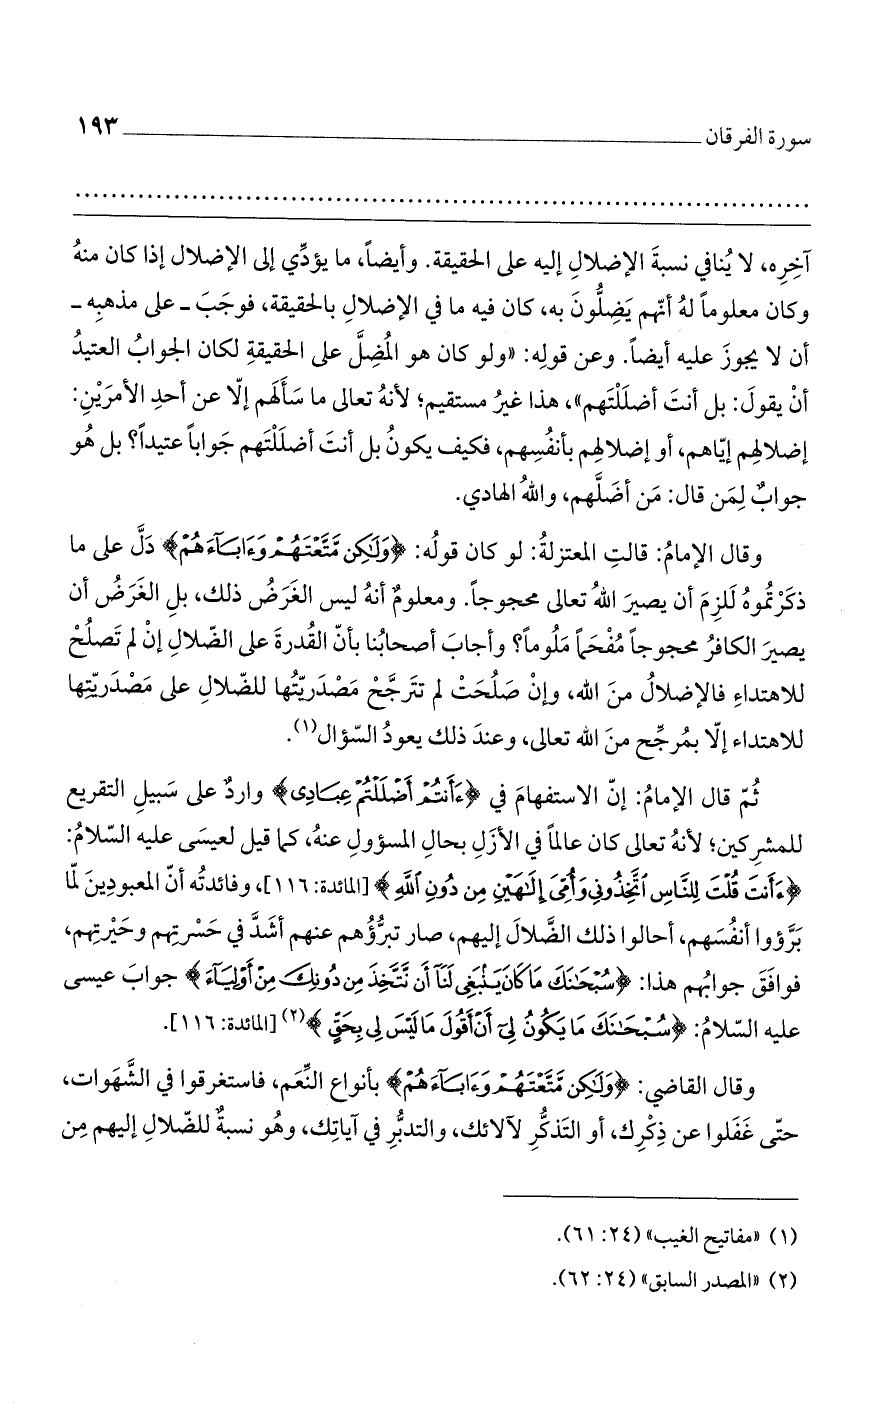 سورة الفرقان ١٩٣
آخِرِه، لا يُنافي نسبةَ الإضلالِ إليه على الحقيقة. وأيضاً، ما يؤدِّي إلى الإضلال إذا كان منهُ
وكان معلوماً لهُ أنّهم يَضِلُّونَ به، كان فيه ما في الإضلالِ بالحقيقة، فوجَبَ ـ على مذهبِه ـ
أن لا يجوزَ عليه أيضاً. وعن قولِه: «ولو كان هو المُضِلَّ على الحقيقةِ لكان الجوابُ العتيدُ
أنْ يقولَ: بل أنتَ أضلَلْتَهم»، هذا غيرُ مستقيم؛ لأنهُ تعالى ما سَأَلَهم إلّا عن أحدِ الأمرَيْنِ:
إضلالِهم إيّاهم، أو إضلالِهم بأنفُسِهم، فكيف يكونُ بل أنتَ أضلَلْتَهم جَواباً عتيداً؟ بل هُو
جوابٌ لِمَن قال: مَن أضَلَّهم، واللهُ الهادي.
وقال الإمامُ: قالتِ المعتزلةُ: لو كان قولُه: ﴿وَلَٰكِن مَّتَّعْتَهُمْ وَءَابَآءَهُمْ﴾ دَلَّ على ما
ذكَرْتُموهُ لَلزِمَ أن يصيرَ اللهُ تعالى محجوجاً. ومعلومٌ أنهُ ليس الغَرَضُ ذلك، بلِ الغَرَضُ أن
يصيرَ الكافرُ محجوجاً مُفْحَماً مَلُوماً؟ وأجابَ أصحابُنا بأنّ القُدرةَ على الضّلالِ إنْ لم تَصلُحْ
للاهتداءِ فالإضلالُ منَ الله، وإنْ صَلُحَتْ لم تتَرجَّحْ مَصْدَريّتُها للضّلالِ على مَصْدَريّتِها
للاهتداء إلّا بمُرجِّح منَ الله تعالى، وعندَ ذلك يعودُ السّؤال(١).
ثُمّ قال الإمامُ: إنّ الاستفهامَ في ﴿ءَأَنتُمْ أَضْلَلْتُمْ عِبَادِى﴾ واردٌ على سَبيلِ التقريع
للمشرِكين؛ لأنهُ تعالى كان عالماً في الأزَلِ بحالِ المسؤولِ عنهُ، كما قيل لعيسَى عليه السّلامُ:
﴿ءَأَنتَ قُلْتَ لِلنَّاسِ ٱتَّخِذُونِى وَأُمِّىَ إِلَٰهَيْنِ مِن دُونِ ٱللَّهِ﴾ [المائدة: ١١٦]، وفائدتُه أنّ المعبودِينَ لمّا
بَرَّؤوا أنفُسَهم، أحالوا ذلك الضَّلالَ إليهم، صار تبرُّؤُهم عنهم أشَدَّ في حَسْرتِهم وحَيْرتِهم،
فوافَقَ جوابُهم هذا: ﴿سُبْحَٰنَكَ مَا كَانَ يَنۢبَغِى لَنَآ أَن نَّتَّخِذَ مِن دُونِكَ مِنْ أَوْلِيَآءَ﴾ جوابَ عيسى
عليه السّلامُ: ﴿سُبْحَٰنَكَ مَا يَكُونُ لِىٓ أَنْ أَقُولَ مَا لَيْسَ لِى بِحَقٍّ﴾(٢) [المائدة: ١١٦].
وقال القاضي: ﴿وَلَٰكِن مَّتَّعْتَهُمْ وَءَابَآءَهُمْ﴾ بأنواع النِّعَم، فاستغرقوا في الشَّهوات،
حتّى غَفَلوا عن ذِكْرِك، أو التَذكُّرِ لآلائك، والتدبُّرِ في آياتِك، وهُو نسبةٌ للضّلالِ إليهم مِن
(١) «مفاتيح الغيب» (٢٤: ٦١).
(٢) «المصدر السابق» (٢٤: ٦٢).